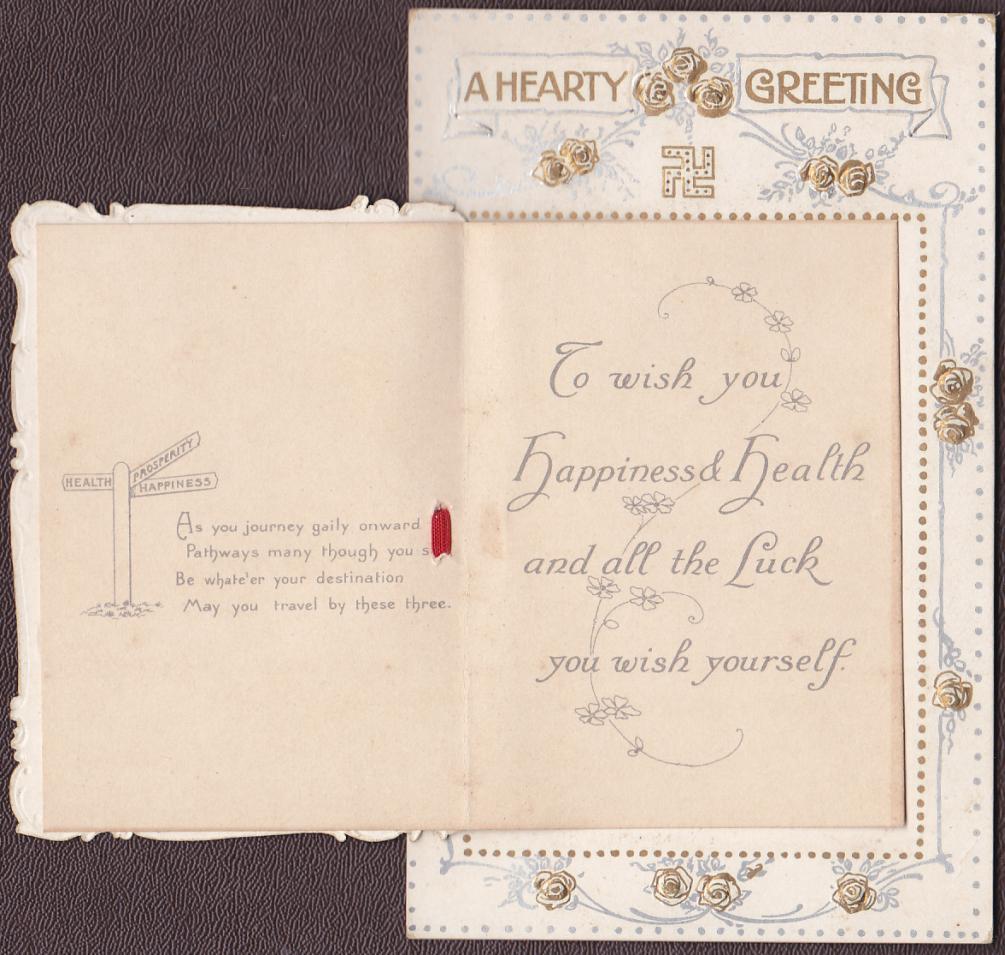 A HEARTY GREETING
HEALTH
PROSPERITY
HAPPINESS
As you journey gaily onward
Pathways many though you
Be whate'er your destination
May you travel by these three.
To wish you
Happiness & Health
and all the Luck
you wish yourself.